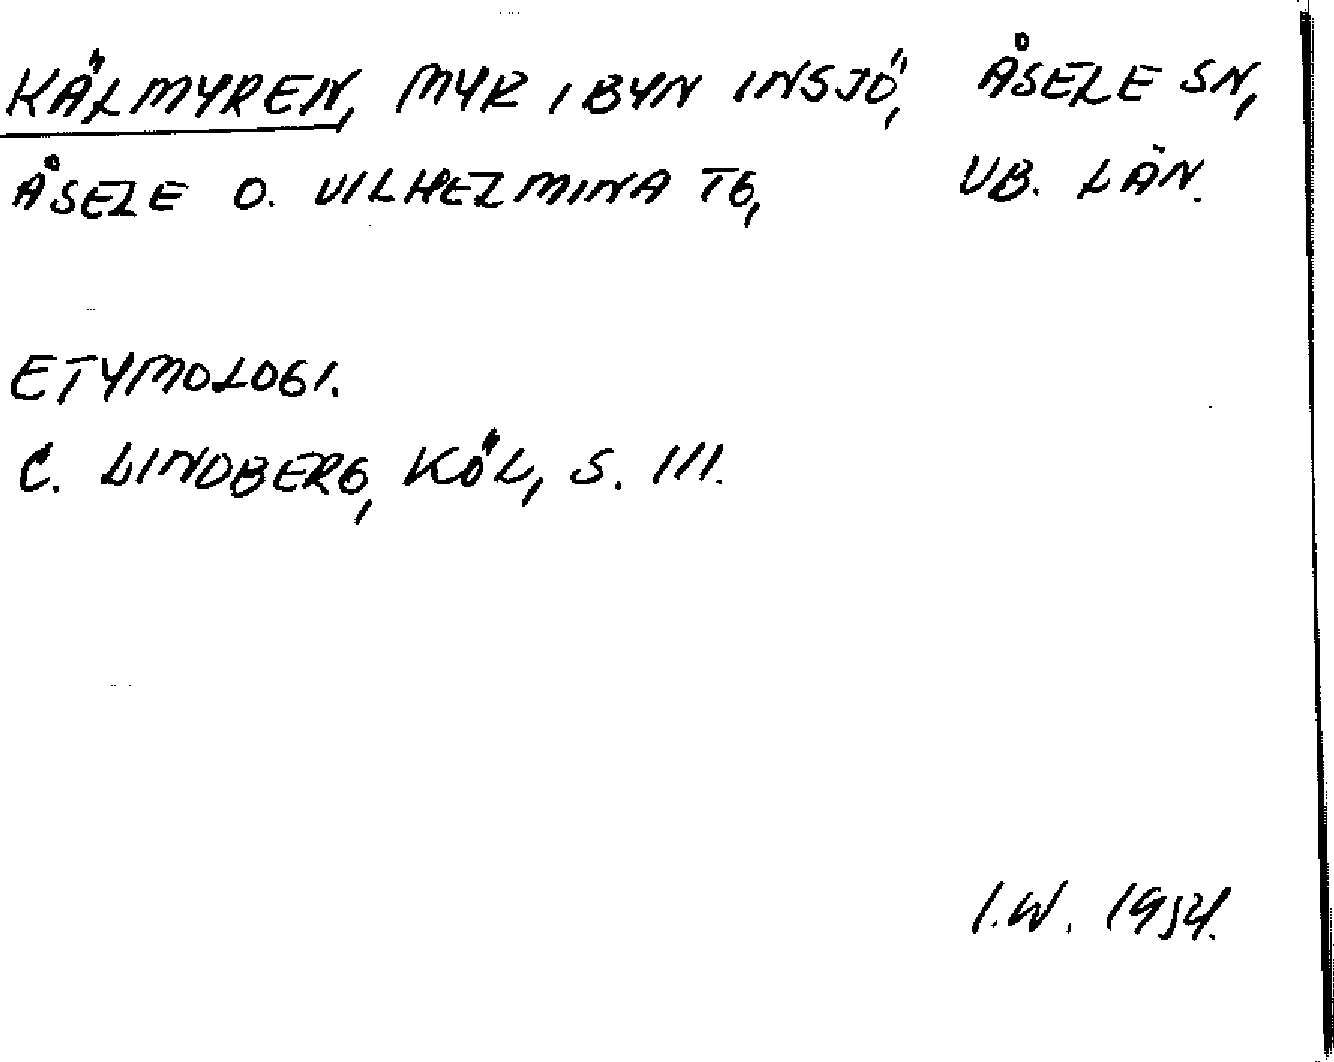 KÄLMYREN, MYR I BYN INSJÖ, ÅSELE SN,
ÅSELE O. VILHELMINA TG, VB. LÄN.
ETYMOLOGI.
C. LINDBERG, KÖL, S. 111.
I.W. 1954.